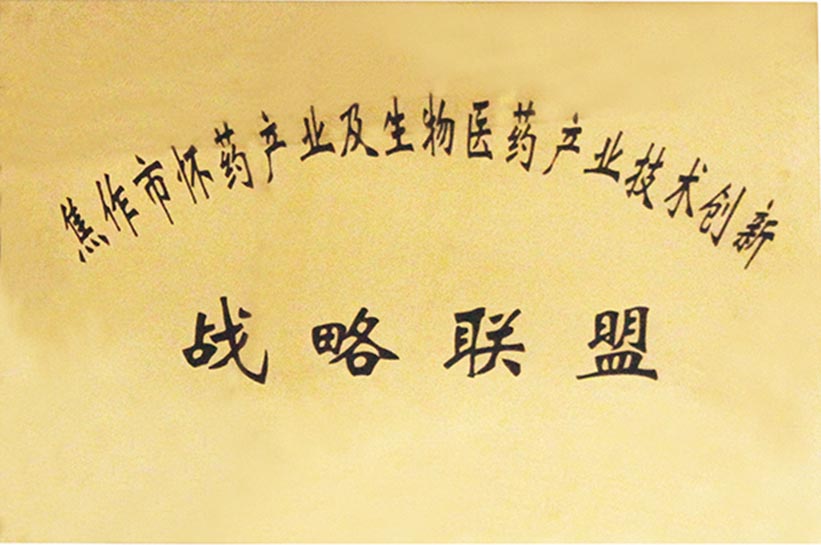 焦作市怀药产业及生物医药产业技术创新
战略联盟